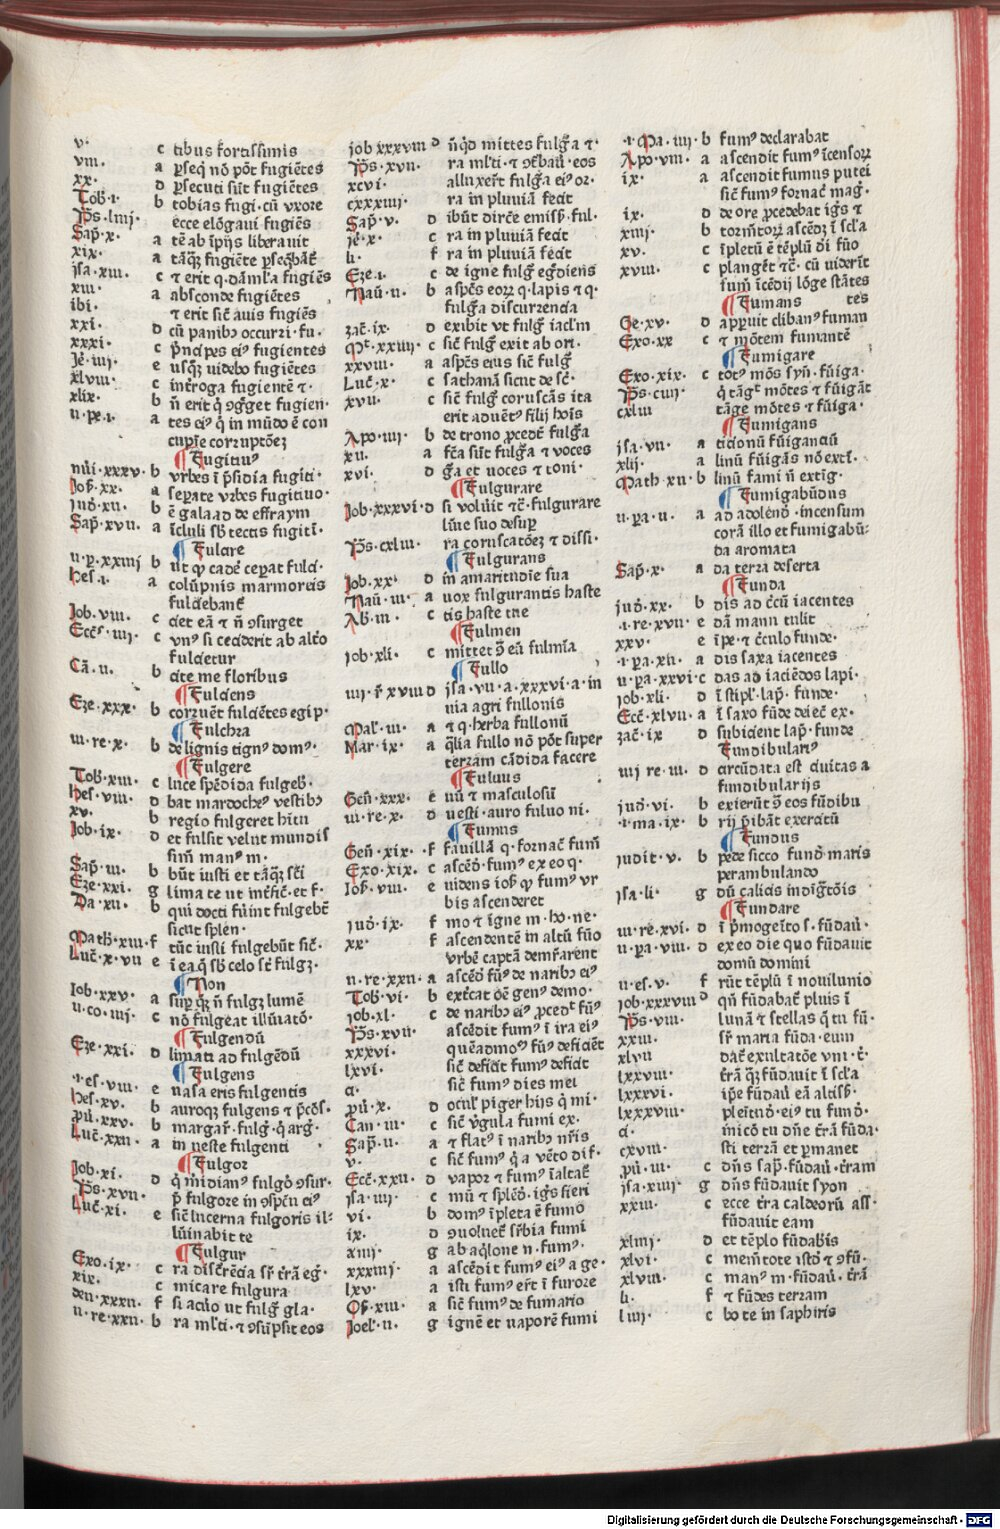 v· c tibus fortissimis
viii. a ꝑseq̄ nō pōt fugiētes
xx· d ꝑsecuti sūt fugiētes
Tob̄·i· b tobias fugi·cū vxore
p̄s·liiij· ecce elōgaui fugiēs
Sap̄·x· a tē ab īpijs liberauit
xix· a tāq̄ꝫ fugiēte ꝑseq̄bāt̄
jsa·xiii· c ⁊ erit q·dāml̓a fugiēs
xiii· a absconde fugiētes
ibi· ⁊ erit sic̄ auis fugiēs
xxi· d cū panibꝰ occurri·fu·
xxxi· c p̄ncipes eiꝰ fugientes
Je̓·iiij· e usq̄ꝫ uidebo fugiētes
xlviii· c int̓roga fugientē ⁊·
xlix· b n̄ erit q̓ ꝯg̓get fugien·
ii·pe·i· a tes eiꝰ q̓ in mūdo ē con
cupīe corruptōeꝫ
¶Fugitiuꝰ
nūi·xxxv· b vrbes ī p̄sidia fugiti·
Jos̄·xx· a seꝑate vrbes fugitiuo·
jud̄·xii· b ē galaad de effraym
Sap̄·xvii· a īcluli sb̄ tectis fugitī·
¶Fulcire
ii·p̄·xxxiij b ut ꝙ cadē ceꝑat fulci·
hes·i· a colūpnis marmoreis
fulciebant̄
Job·viii· c ciet eā ⁊ n̄ ꝯsurget
Ecc̄s·iiij· c vnꝰ si ceciderit ab alt̓o
fulcietur
Cā·ii· b cite me floribus
¶Fulciens
Eze·xxx· b corruēt fulciētes egip·
¶Fulchra
iii·re·x· b de lignis tignꝰ domꝰ·
¶Fulgere
Tob̄·xiii· c luce spēdida fulgeb̄·
hes·viii· d bat mardocheꝰ vestibꝰ
xv· b regio fulgeret hītu
Job·ix· d et fulsit velut mundis
sim̄ manꝰ m·
Sap̄·iii· b būt iusti et tāq̄ꝫ sc̄i
Eze·xxi· g lima te ut int̓fic̄·et f·
Da·xii· b qui docti fūint fulgebt̄
sicut splen·
Math̄·xiii·f tūc iusti fulgebūt sic̄·
Luc̄·x·vii e ī ea q̓ sb̄ celo st̄ fulgꝫ·
¶Non
Job·xxv· a suꝑ q̓ꝫ n̄ fulgꝫ lumē
ii·co·iiij· c nō fulgeat illūiatō·
¶Fulgendū
Eze·xxi· d limati ad fulgēdū
¶Fulgens
·i·es·viii· e uasa eris fulgentis
hes·xv· b auroqꝫ fulgens ⁊ p̄cōs·
pū·xxv· b margar̄·fulg̓·q̓ arg̓·
Luc̄·xxii· a in ueste fulgenti
¶Fulgor
Job·xi· d q̓ m̓idianꝰ fulgō ꝯsur·
p̄s·xvii· p̄ fulgore in ꝯspc̄u eiꝰ
Luc̄·xi· e sic̄ lucerna fulgoris il⸗
lūinabit te
¶Fulgur
Exo·ix· c ra disc̄rēcia sr̄ t̓rā eg̓·
xix· c micare fulgura
deu·xxxii· f si acūo ut fulg̓ gla·
ii·re·xxii· b ra ml̓ti·⁊ ꝯsūpsit eos
job xxxviii d n̄q̓d mittes fulg̓a ⁊·
p̄s·xvii· ra ml̓ti·⁊ ꝯt̓baū·eos
xcvi· alluxer̄t fulg̓a eiꝰ or·
cxxxiiij· ra in pluuiā fecit
Sap̄·v· d ibūt dirc̄e emiss̄·ful·
je̓·x· c ra in pluuiā fecit
li· f ra in pluuiā fecit
Eze·i· c de igne fulg̓ eg̓diens
Naū·ii· b aspc̄s eorꝝ q·lapis ⁊ q·
fulg̓a discurrencia
zac̄·ix· d exibit vt fulg̓ iacl̓m
Mt̓·xxiiij· c sic̄ fulg̓ exit ab ori·
xxviii· a aspc̄s eius sic̄ fulg̓
Luc̄·x· c sathanā sicut de sc̄·
xvii· c sic̄ fulg̓ coruscās ita
erit aduētꝰ filij hoīs
Apo·iiij· b de trono ꝓcedt̄ fulg̓a
xii· a fc̄a sūt fulg̓a ⁊ voces
xvi· d g̓a et uoces ⁊ toni·
¶Fulgurare
Job·xxxvi·d si volūit ⁊c̄·fulgurare
lūie suo desuꝑ
p̄s·cxliii· ra coruscatōeꝫ ⁊ dissi·
¶Fulgurans
Job·xx· d in amaritudīe sua
Naū·iii· a uox fulgurantis haste
Ab·iii· c tis haste tue
¶Fulmen
job·xli· c mittet ꝯ̄ eū fulmīa
¶Fullo
iiij·r̄ xviii d jsa·vii·a·xxxvi·a·in
uia agri fullonis
Mal̓·iii· a ⁊ q·herba fullonū
Mar·ix· a q̓lia fullo nō pōt super
terram cādida facere
¶Fuluus
Gen̄·xxx· e uū ⁊ masculosū
iii·re·x· d uesti·auro fuluo ni·
¶Fumus
Gen̄·xix· f fauillā q·fornac̄ fum̄
Exo·xix· c ascēd̄·fumꝰ ex eo q·
Jos̄·viii· e uidens ios̄ ꝙ fumꝰ vr
bis ascenderet
jud̄·ix· f mo ⁊ īgne m·ho·ne·
xx· f ascendentē in altū fūo
vrbē captā dem̓rarent
ii·re·xxii· a ascēd̄ fūꝰ de naribꝰ eiꝰ
Tob̄·vi· b ext̓cat oē genꝰ demo·
job·xl· c de naribꝰ eiꝰ ꝓcedt̄ fūꝰ
p̄s·xvii· ascēdit fumꝰ ī ira eiꝰ
xxxvi· quēadmoꝰ fūꝰ deficiēt
lxvi· sic̄ deficit fumꝰ deficit
ci· sic̄ fumꝰ dies mei
pū·x· d oculꝰ piger hijs q̓ mi·
Can·iii· c sic̄ v̓gula fumi ex·
Sap̄·ii· a ⁊ flatꝰ ī naribꝰ nr̄is
v· c sic̄ fumꝰ q̓ a vēto dif·
Ecc̄·xxii· d vapor ⁊ fumꝰ īaltat̄
jsa·iiij· c mū ⁊ splēd̄·ig̓s fieri
vi· b domꝰ īpleta ē fumo
ix· d ꝯuoluet̄ sr̄bia fumi
xiiij· g ab aq̓lone n·fumꝰ·
xxxiiij· a ascēdit fumꝰ eiꝰ a ge·
lxv· a isti fumꝰ er̄t ī furore
Os̄·xiii· a sic̄ fumꝰ de fumario
Joel̓·ii· g ignē et uaporē fumi
·i·Ma·iiij·b fumꝰ declarabat
Apo·viii· a ascendit fumꝰ īcensorꝝ
ix· a ascendit fumus putei
sic̄ fumꝰ fornac̄ mag̓·
ix· d de ore ꝓcedebat ig̓s ⁊
xiiij· b torm̄torꝝ ascēdꝫ ī scl̓a
xv· c īpletū ē tēplū d̄i fūo
xviii· c plangēt ⁊c̄·cū uiderīt
fum̄ īcēdij lōge stātes
¶Fumans tes
Ge·xv· d apꝑuit clibanꝰ fuman
Exo·xx c ⁊ mōtem fumantē
¶Fumigare
Exo·xix· c totꝰ mōs syn̄·fūiga·
p̄s·ciii· q̓ tāgt̄ mōtes ⁊ fūigāt
cxliii tāge mōtes ⁊ fūiga·
¶Fumigans
jsa·vii· a ticionū fūigantiū
xlij· a linū fūigās nō extī·
Math·xii·b linū fami n̄ extig̓·
¶Fumigabūdus
ii·ꝑa·ii· a ad adolend̄·incensum
corā illo et fumigabū⸗
da aromata
Sap̄·x· a da terra deserta
¶Funda
jud̄·xx· b dis ad c̄tū iacentes
·i·re·xvii· e dā manu tulit
xxv· e īpe·⁊ c̄culo funde·
·i·ꝑa·xii· a dis saxa iacentes
ii·ꝑa·xxvi·c das ad iaciēdos lapi·
job·xli· d ī stipl̓·lap̄·funde·
Ecc̄·xlvii· a ī saxo fūde deiec̄ ex·
zac̄·ix d subicient lap̄·funde
Fundibulariꝰ
iiij re·iii· d circūdata est ciuitas a
fundibularijs
jud̄·vi· b exierūt ꝯ̄ eos fūdibu
·i·ma·ix· b rij p̄ibāt exercitū
¶Fundus
iudit·v· b pede sicco fund̄ maris
perambulando
jsa·li· g dū calicis indig̓tōis
¶Fundare
iii·re·xvi· d ī p̄mogeīto s·fūdaū·
ii·ꝑa·viii· d ex eo die quo fūdauit
domū domini
ii·es·v· f rūt tēplū ī nouilunio
job·xxxviii d qn̄ fūdabat̄ pluis ī
p̄s·viii· lunā ⁊ stellas q̓ tu fū·
xxiii· sr̄ maria fūda·eum
xlvii dat̄ exultatōe vni·t̓·
lxxviii· t̓rā q̓ꝫ fūdauit ī scl̓a
lxxxvi· ip̄e fūdaū eā altiss̄·
lxxxviii· pleitud̄·eiꝰ tu fund̄·
ci· īnicō tu dn̄e t̓rā fūda·
cxviii· sti terrā et ꝑmanet
pū·iii· c dn̄s sap̄·fūdaū·t̓ram
jsa·xiiij· g dn̄s fūdauit syon
xxiii· c ecce t̓ra caldeorū ass̄·
fūdauit eam
xliiij· d et tēplo fūdabīs
xlvi· c mem̄tote istd̄ ⁊ ꝯfū·
xlviii· c manꝰ m·fūdaū·t̓rā
li· f ⁊ fūdes terram
liiij· c bo te in saphiris
Digitalisierung gefördert durch die Deutsche Forschungsgemeinschaft - DFG